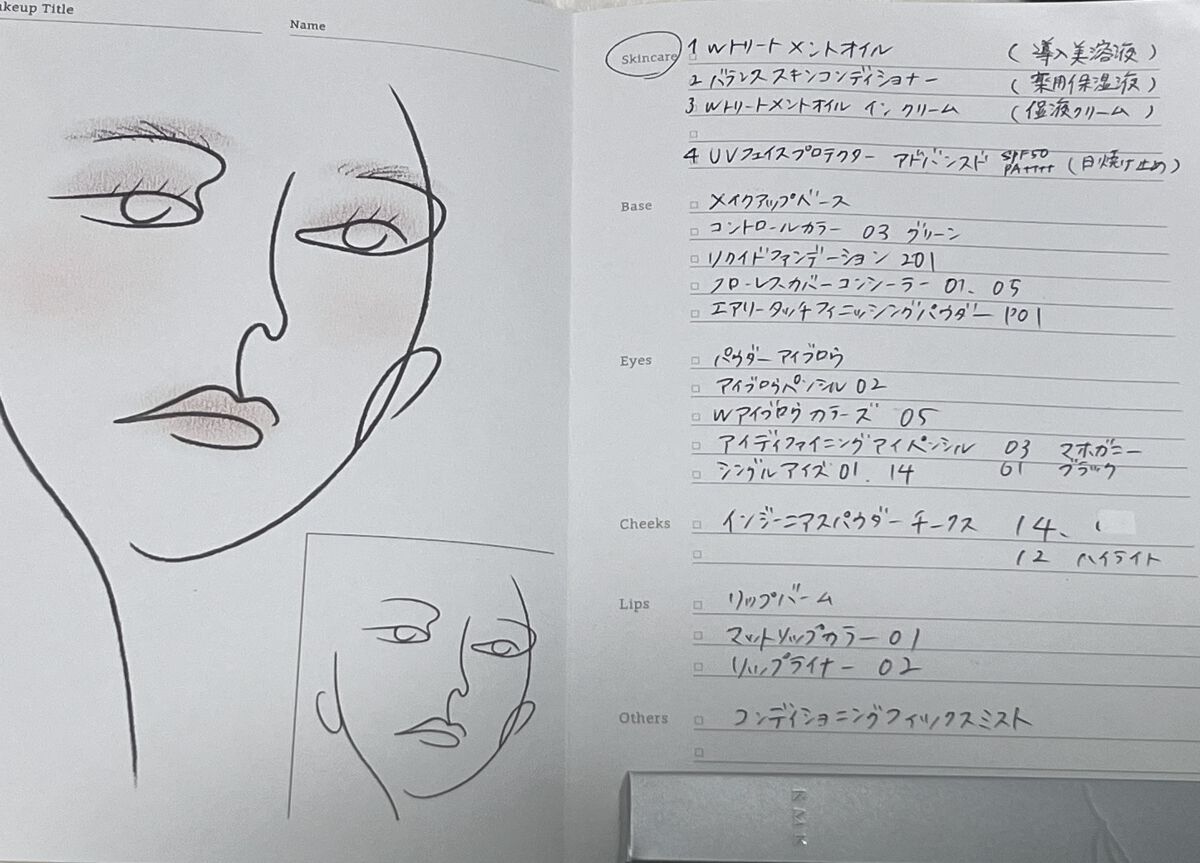 keup Title
Name
Skincare 1 Wトリートメントオイル (導入美溶液)
2 バランス スキンコンディショナー (薬用保湿液)
3 Wトリートメントオイル イン クリーム (保液クリーム)
4 UVフェイスプロテクター アドバンスド SPF50 PA++++ (日焼け止め)
Base メイクアップベース
コントロールカラー 03 グリーン
リクイドファンデーション 201
フローレスカバーコンシーラー 01、05
エアリータッチフィニッシングパウダー P01
Eyes パウダーアイブロウ
アイブロウペンシル 02
Wアイブロウカラーズ 05
アイディファイニングアイペンシル 03 マホガニー
シングルアイズ 01、14 01 ブラック
Cheeks インジーニアスパウダーチークス 14、
12 ハイライト
Lips リップバーム
マットリップカラー 01
リップライナー 02
Others コンディショニングフィックスミスト
RMK